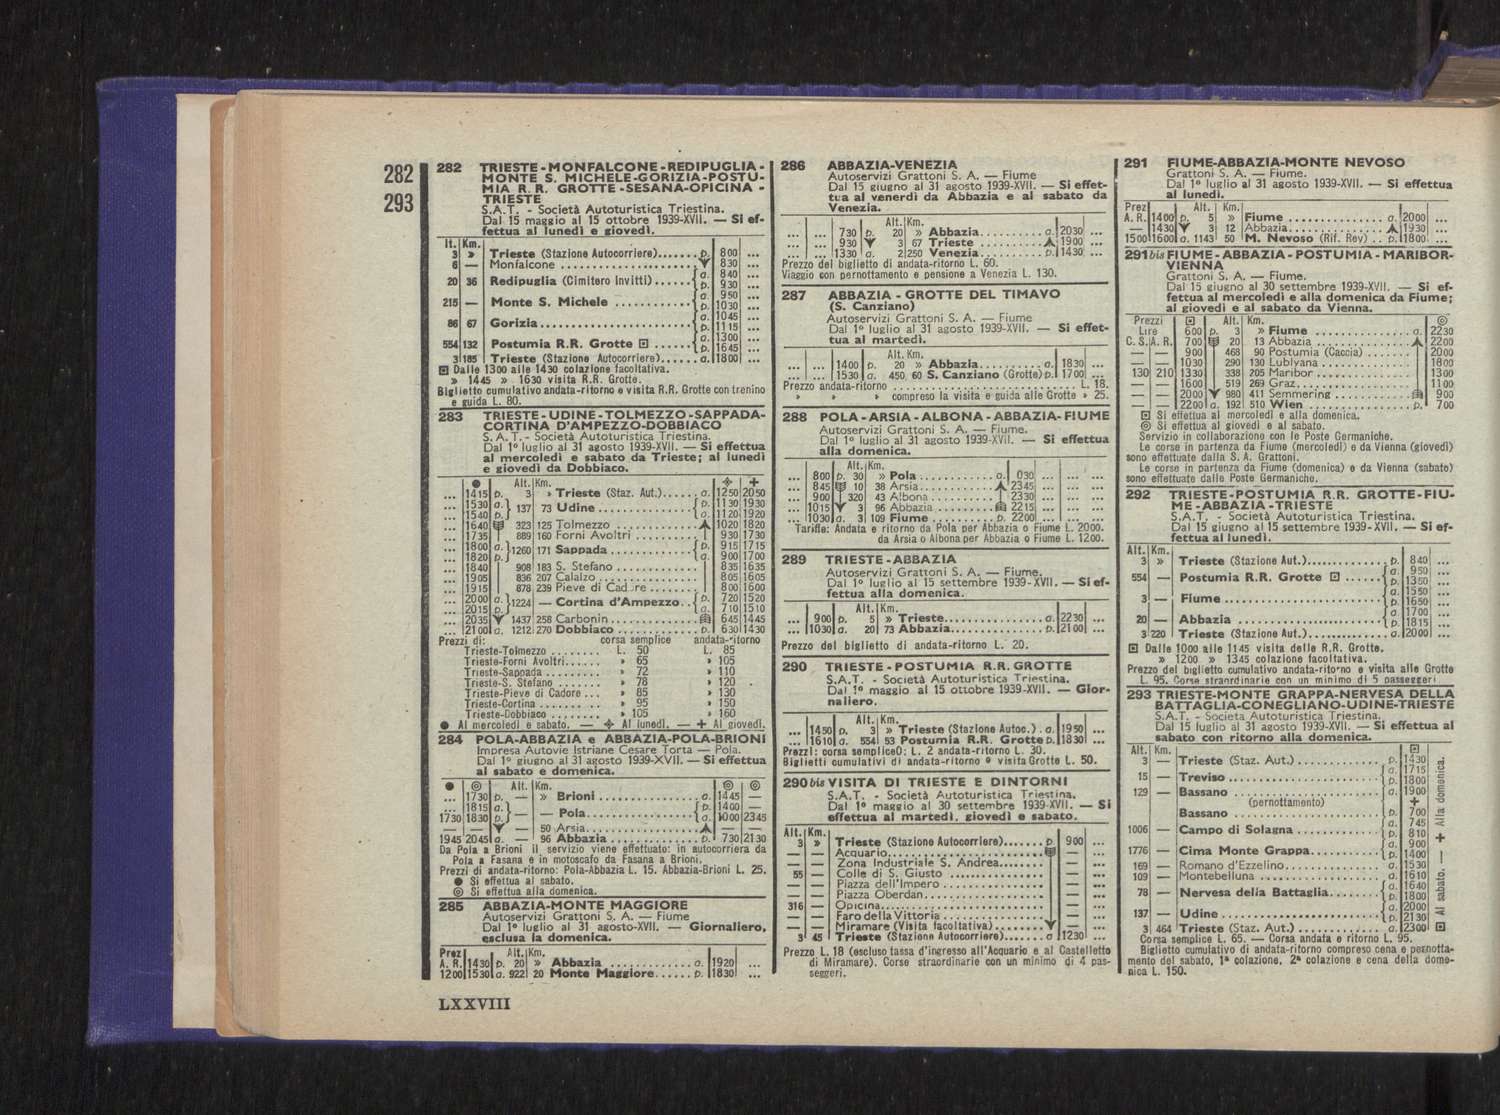 282
293
282 TRIESTE-MONFALCONE-REDIPUGLIA-
MONTE S. MICHELE-GORIZIA-POSTU-
MIA R. R. GROTTE-SESANA-OPICINA -
TRIESTE
S.A.T. - Società Autoturistica Triestina.
Dal 15 maggio al 15 ottobre 1939-XVII. — Si ef-
fettua al lunedì e giovedì.
lt. Km.
3 » Trieste (Stazione Autocorriere)....... p. 800 ...
6 — Monfalcone .................. 830 ...
20 36 Redipuglia (Cimitero Invitti)...... { a. 840 ...
p. 930 ...
215 — Monte S. Michele ........... { a. 950 ...
p. 1030 ...
86 67 Gorizia...................... { a. 1045 ...
p. 1115 ...
554 132 Postumia R.R. Grotte ⊡ ...... { a. 1300 ...
p. 1645 ...
3 185 Trieste (Stazione Autocorriere)...... a. 1800 ...
⊡ Dalle 1300 alle 1430 colazione facoltativa.
» 1445 » 1630 visita R.R. Grotte.
Biglietto cumulativo andata-ritorno e visita R.R. Grotte con trenino
e guida L. 80.
283 TRIESTE-UDINE-TOLMEZZO-SAPPADA-
CORTINA D'AMPEZZO-DOBBIACO
S. A. T. - Società Autoturistica Triestina.
Dal 1º luglio al 31 agosto 1939-XVII. — Si effettua
al mercoledì e sabato da Trieste; al lunedì
e giovedì da Dobbiaco.
● Alt. Km. ✧ +
... 1415 p. 3 » Trieste (Staz. Aut.)...... a. 1250 2050
... 1530 a. } 137 73 Udine ................ { p. 1130 1930
... 1540 p. a. 1120 1920
... 1640 323 125 Tolmezzo ............ 1020 1820
... 1735 889 160 Forni Avoltri ......... 930 1730
... 1800 a. } 1260 171 Sappada ............ { p. 915 1715
... 1820 p. a. 900 1700
... 1840 908 183 S. Stefano ............ 835 1635
... 1905 836 207 Calalzo .............. 805 1605
... 1915 878 239 Pieve di Cadore ........ 800 1600
... 2000 a. } 1224 — Cortina d'Ampezzo.. { p. 720 1520
... 2015 p. a. 710 1510
... 2035 1437 258 Carbonin ............ 645 1445
... 2100 a. 1212 270 Dobbiaco ............ p. 630 1430
Prezzi di: corsa semplice andata-ritorno
Trieste-Tolmezzo ........ L. 50 L. 85
Trieste-Forni Avoltri...... » 65 » 105
Trieste-Sappada .......... » 72 » 110
Trieste-S. Stefano ....... » 78 » 120
Trieste-Pieve di Cadore ... » 85 » 130
Trieste-Cortina .......... » 95 » 150
Trieste-Dobbiaco ........ » 105 » 160
● Al mercoledì e sabato. — ✧ Al lunedì. — + Al giovedì.
284 POLA-ABBAZIA e ABBAZIA-POLA-BRIONI
Impresa Autovie Istriane Cesare Torta — Pola.
Dal 1º giugno al 31 agosto 1939-XVII. — Si effettua
al sabato e domenica.
● ◎ Alt. Km. ◎ ◎
... 1730 p. — » Brioni ................ a. 1445 —
... 1815 a. } — — Pola.................. { p. 1400 —
1730 1830 p. a. 1000 2345
— — — 50 Arsia.................. — —
1945 2045 a. — 96 Abbazia ............... p. 730 2130
Da Pola a Brioni il servizio viene effettuato: in autocorriera da
Pola a Fasana e in motoscafo da Fasana a Brioni.
Prezzi di andata-ritorno: Pola-Abbazia L. 15. Abbazia-Brioni L. 25.
● Si effettua al sabato.
◎ Si effettua alla domenica.
285 ABBAZIA-MONTE MAGGIORE
Autoservizi Grattoni S. A. — Fiume
Dal 1º luglio al 31 agosto-XVII. — Giornaliero,
esclusa la domenica.
Prez Alt. Km.
A. R. 1430 p. 20 » Abbazia ............ a. 1920 ...
1200 1530 a. 922 20 Monte Maggiore...... p. 1830 ...
LXXVIII
286 ABBAZIA-VENEZIA
Autoservizi Grattoni S. A. — Fiume
Dal 15 giugno al 31 agosto 1939-XVII. — Si effet-
tua al venerdì da Abbazia e al sabato da
Venezia.
Alt. Km.
... ... 730 p. 20 » Abbazia............ a. 2030 ...
... ... 930 3 67 Trieste .......... 1900 ...
... ... 1330 a. 2 250 Venezia............ p. 1430 ...
Prezzo del biglietto di andata-ritorno L. 60.
Viaggio con pernottamento e pensione a Venezia L. 130.
287 ABBAZIA - GROTTE DEL TIMAVO
(S. Canziano)
Autoservizi Grattoni S. A. — Fiume
Dal 1º luglio al 31 agosto 1939-XVII. — Si effet-
tua al martedì.
Alt. Km.
... ... 1400 p. 20 » Abbazia............ a. 1830 ...
... ... 1530 a. 450 60 S. Canziano (Grotte) p. 1700 ...
Prezzo andata-ritorno .......................... L. 18.
» » » compreso la visita e guida alle Grotte » 25.
288 POLA-ARSIA-ALBONA-ABBAZIA-FIUME
Autoservizi Grattoni S. A. — Fiume.
Dal 1º luglio al 31 agosto 1939-XVII. — Si effettua
alla domenica.
Alt. Km.
... 800 p. 30 » Pola .............. a. 030 ... ...
... 845 10 38 Arsia.............. 2345 ... ...
... 900 320 43 Albona ........... 2330 ... ...
... 1015 3 96 Abbazia ......... 2215 ... ...
... 1030 a. 3 109 Fiume .......... p. 2200 ... ...
Tariffe: Andata e ritorno da Pola per Abbazia o Fiume L. 2000.
da Arsia o Albona per Abbazia o Fiume L. 1200.
289 TRIESTE-ABBAZIA
Autoservizi Grattoni S. A. — Fiume.
Dal 1º luglio al 15 settembre 1939-XVII. — Si ef-
fettua alla domenica.
Alt. Km.
... 900 p. 5 » Trieste.............. a. 2230 ...
... 1030 a. 20 73 Abbazia.............. p. 2100 ...
Prezzo del biglietto di andata-ritorno L. 20.
290 TRIESTE-POSTUMIA R.R. GROTTE
S.A.T. - Società Autoturistica Triestina.
Dal 1º maggio al 15 ottobre 1939-XVII. — Gior-
naliero.
Alt. Km.
... 1450 p. 3 » Trieste (Stazione Autoc.) . a. 1950 ...
... 1610 a. 554 53 Postumia R.R. Grotte p. 1830 ...
Prezzi: corsa semplice L. 2 andata-ritorno L. 30.
Biglietti cumulativi di andata-ritorno e visita Grotte L. 50.
290bis VISITA DI TRIESTE E DINTORNI
S.A.T. - Società Autoturistica Triestina.
Dal 1º maggio al 30 settembre 1939-XVII. — Si
effettua al martedì, giovedì e sabato.
Alt. Km.
3 » Trieste (Stazione Autocorriere)...... p. 900 ...
— — Acquario...................... — ...
— — Zona Industriale S. Andrea........ — ...
55 — Colle di S. Giusto .............. — ...
— — Piazza dell'Impero .............. — ...
— — Piazza Oberdan.................. — ...
316 — Opicina........................ — ...
— — Faro della Vittoria ............. — ...
— — Miramare (Visita facoltativa)...... — ...
3 45 Trieste (Stazione Autocorriere)...... a 1230 ...
Prezzo L. 18 (escluso tassa d'ingresso all'Acquario e al Castelletto
di Miramare). Corse straordinarie con un minimo di 4 pas-
seggeri.
291 FIUME-ABBAZIA-MONTE NEVOSO
Grattoni S. A. — Fiume.
Dal 1º luglio al 31 agosto 1939-XVII. — Si effettua
al lunedì.
Prez Alt. Km.
A. R. 1400 p. 5 » Fiume .............. a. 2000 ...
— 1430 3 12 Abbazia.............. 1930 ...
1500 1600 a. 1143 50 M. Nevoso (Rif. Rey) .. p. 1800 ...
291bis FIUME-ABBAZIA-POSTUMIA-MARIBOR-
VIENNA
Grattoni S. A. — Fiume.
Dal 15 giugno al 30 settembre 1939-XVII. — Si ef-
fettua al mercoledì e alla domenica da Fiume;
al giovedì e al sabato da Vienna.
Prezzi ⊡ Alt. Km. ◎
Lire 600 p. 3 » Fiume .............. a. 2230
C. S. A. R. 700 20 13 Abbazia ............ 2200
— — 900 468 90 Postumia (Caccia) ...... 2000
— — 1030 290 130 Lubiyana ............ 1800
130 210 1330 338 205 Maribor .............. 1300
— — 1600 519 269 Graz................ 1100
— — 2000 980 411 Semmering ........... 900
— — 2200 a. 192 510 Wien ................ p. 700
⊡ Si effettua al mercoledì e alla domenica.
◎ Si effettua al giovedì e al sabato.
Servizio in collaborazione con le Poste Germaniche.
Le corse in partenza da Fiume (mercoledì) e da Vienna (giovedì)
sono effettuate dalla S. A. Grattoni.
Le corse in partenza da Fiume (domenica) e da Vienna (sabato)
sono effettuate dalle Poste Germaniche.
292 TRIESTE-POSTUMIA R.R. GROTTE-FIU-
ME-ABBAZIA-TRIESTE
S.A.T. - Società Autoturistica Triestina.
Dal 15 giugno al 15 settembre 1939-XVII. — Si ef-
fettua al lunedì.
Alt. Km.
3 » Trieste (Stazione Aut.).............. p. 840 ...
554 — Postumia R.R. Grotte ⊡ ...... { a. 950 ...
p. 1350 ...
3 — Fiume ...................... { a. 1550 ...
p. 1650 ...
20 — Abbazia .................... { a. 1700 ...
p. 1815 ...
3 220 Trieste (Stazione Aut.).............. a. 2000 ...
⊡ Dalle 1000 alle 1145 visita delle R.R. Grotte.
» 1200 » 1345 colazione facoltativa.
Prezzo del biglietto cumulativo andata-ritorno e visita alle Grotte
L. 95. Corse straordinarie con un minimo di 5 passeggeri
293 TRIESTE-MONTE GRAPPA-NERVESA DELLA
BATTAGLIA-CONEGLIANO-UDINE-TRIESTE
S.A.T. - Società Autoturistica Triestina.
Dal 15 luglio al 31 agosto 1939-XVII. — Si effettua al
sabato con ritorno alla domenica.
Alt. Km. ⊡
3 — Trieste (Staz. Aut.) .............. p. 1430
15 — Treviso ...................... { a. 1715
p. 1800
129 — Bassano ...................... a. 1900
(pernottamento) +
Bassano ...................... p. 700
1006 — Campo di Solagna .............. { a. 745
p. 810
1776 — Cima Monte Grappa............ { a. 900
p. 1400
169 — Romano d'Ezzelino.............. 1530
109 — Montebelluna .................. 1610
78 — Nervesa della Battaglia........ { a. 1640
p. 1800
137 — Udine ........................ { a. 2000
p. 2130
3 464 Trieste (Staz. Aut.) .............. a. 2300 ⊡
⊡ Al sabato. — + Alla domenica.
Corsa semplice L. 65. — Corsa andata e ritorno L. 95.
Biglietto cumulativo di andata-ritorno compreso cena e pernotta-
mento del sabato, 1ª colazione, 2ª colazione e cena della dome-
nica L. 150.